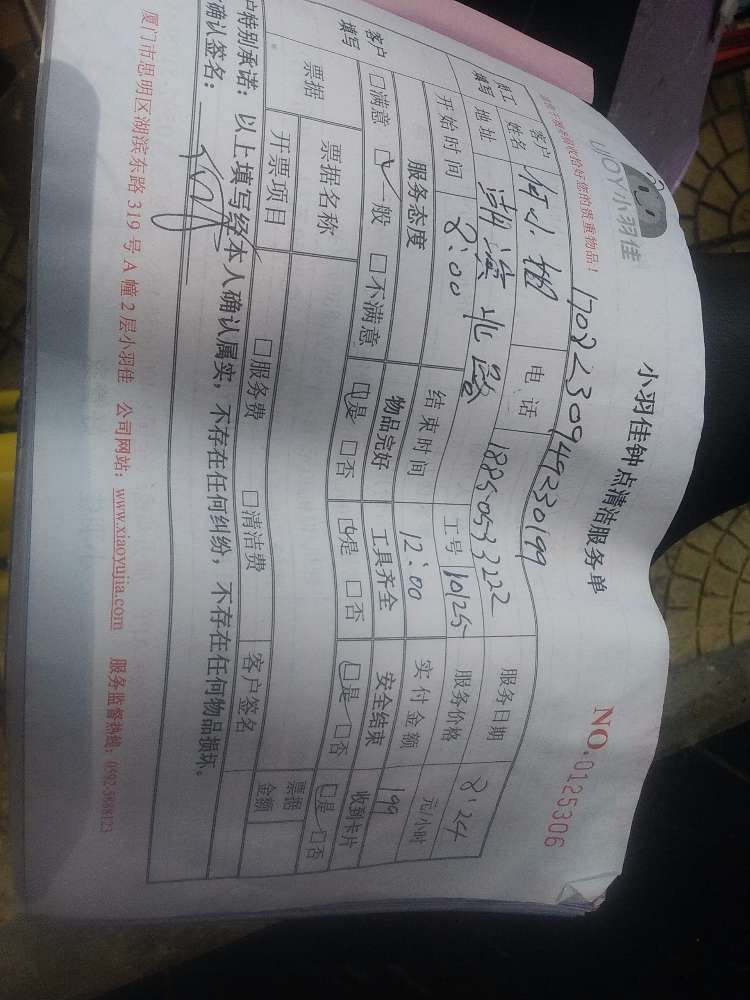 UJOY小羽佳
小羽佳钟点清洁服务单
NO.0125306
1708230949230199
客户姓名 何小姐 电话 18850533222 服务日期 8.24
员工填写 地址 湖滨北路 工号 10125 服务价格 元/小时
开始时间 8:00 结束时间 12:00 实付金额 199
客户填写 服务态度 物品完好 工具齐全 安全结束 收到卡片
□满意 □一般 □不满意 □是 □否 □是 □否 □是 □否 □是 □否
票据 票据名称 票据金额
开票项目 □服务费 □清洁费 客户签名
户特别承诺：以上填写经本人确认属实，不存在任何纠纷，不存在任何物品损坏。
确认签名：
厦门市思明区湖滨东路319号A幢2层小羽佳 公司网站：www.xiaoyujia.com 服务监督热线：0592-5888123